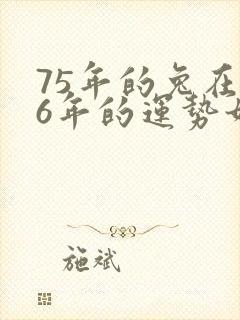 75年的兔在
6年的运势如
施斌